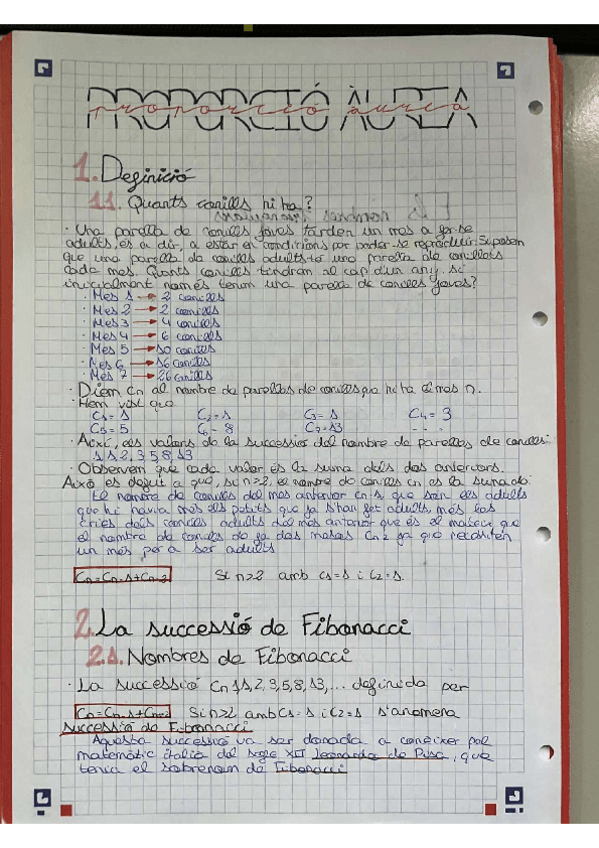 PROPORCIÓ ÀUREA
proporció àurea
1. Definició
1.1. Quants conills hi ha?
· Una parella de conills joves tarden un mes a fer-se
adults, és a dir, a estar en condicions per poder-se reproduir. Suposem
que una parella de conills adults té una parella de conillets
cada mes. Quants conills tindrem al cap d'un any, si
inicialment només tenim una parella de conills joves?
· Mes 1 → 2 conills
· Mes 2 → 2 conills
· Mes 3 → 4 conills
· Mes 4 → 6 conills
· Mes 5 → 10 conills
· Mes 6 → 16 conills
· Mes 7 → 26 conills
· Diem Cn al nombre de parelles de conills que hi ha el mes n.
· Hem vist que
C1 = 1 C2 = 1 C3 = 1 C4 = 3
C5 = 5 C6 - 8 C7 = 13 - - -
· Així, els valors de la successió del nombre de parelles de conills:
1, 1, 2, 3, 5, 8, 13
· Observem que cada valor és la suma dels dos anteriors.
Això es degut a que, si n>2, el nombre de conills cn es la suma de:
El nombre de conills del mes anterior cn-1, que són els adults
que hi havia més els petits que ja s'han fet adults, més les
cries dels conills adults del mes anterior que és el mateix que
el nombre de conills de fa dos mesos Cn-2 ja que necesiten
un mes per a ser adults
Cn = Cn-1 + Cn-2 Si n>2 amb C1 = 1 i C2 = 1.
2. La successió de Fibonacci
2.1. Nombres de Fibonacci
· La successió Cn 1, 1, 2, 3, 5, 8, 13, ... definida per
Cn = Cn-1 + Cn-2 Si n>2 amb C1 = 1 i C2 = 1 s'anomena
successió de Fibonacci
Aquesta successió va ser donada a conèixer pel
matemàtic italià del segle XII Leonardo de Pisa, que
tenia el sobrenom de Fibonacci